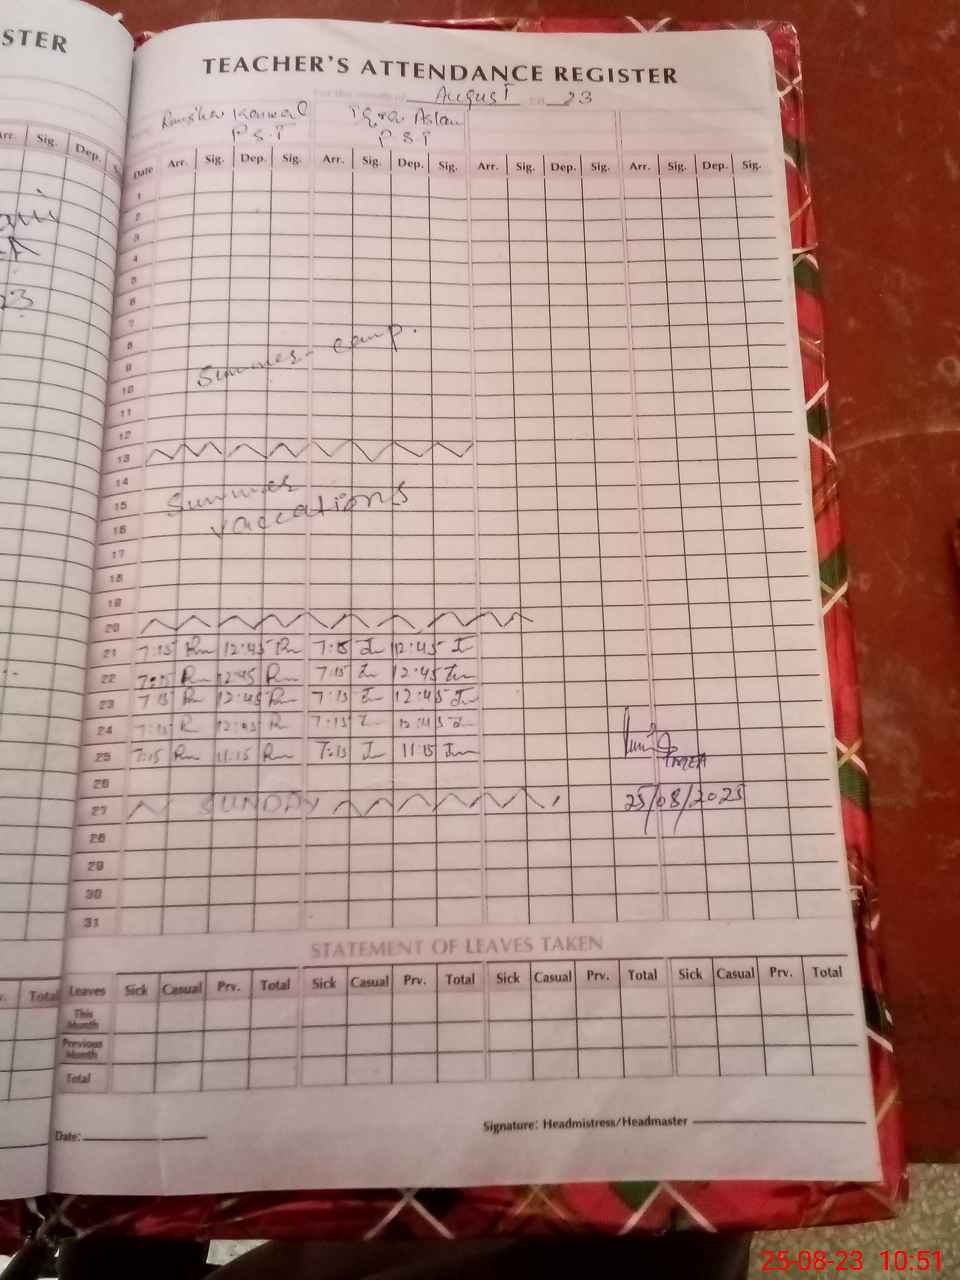 STER
TEACHER'S ATTENDANCE REGISTER
For the month of August 20 23
Kanwal Iqra Aslam
P.S.T P S T
Arr. Sig. Dep. S
Date Arr. Sig. Dep. Sig. Arr. Sig. Dep. Sig. Arr. Sig. Dep. Sig. Arr. Sig. Dep. Sig.
1
2
3
4
5
6
7
8
Summer camp.
9
10
11
12
13
14
Summer
15
vaccations
16
17
18
19
20
21 7:15 Rm 12:45 Rm 7:15 I 12:45 I
22 7:15 Rm 12:45 Rm 7:15 I 12:45 Im
23 7 15 Rm 12:45 Rm 7:15 I 12:45 I
24 7:15 R 12:45 R 7:15 I 12:45 I
25 7:15 Rm 11:15 Rm 7:15 I 11:15 Im
MEA
26
27 SUNDAY 25/08/2023
28
29
30
31
STATEMENT OF LEAVES TAKEN
Total Leaves Sick Casual Prv. Total Sick Casual Prv. Total Sick Casual Prv. Total Sick Casual Prv. Total
This Month
Previous Month
Total
Date:
Signature: Headmistress/Headmaster
25-08-23 10:51